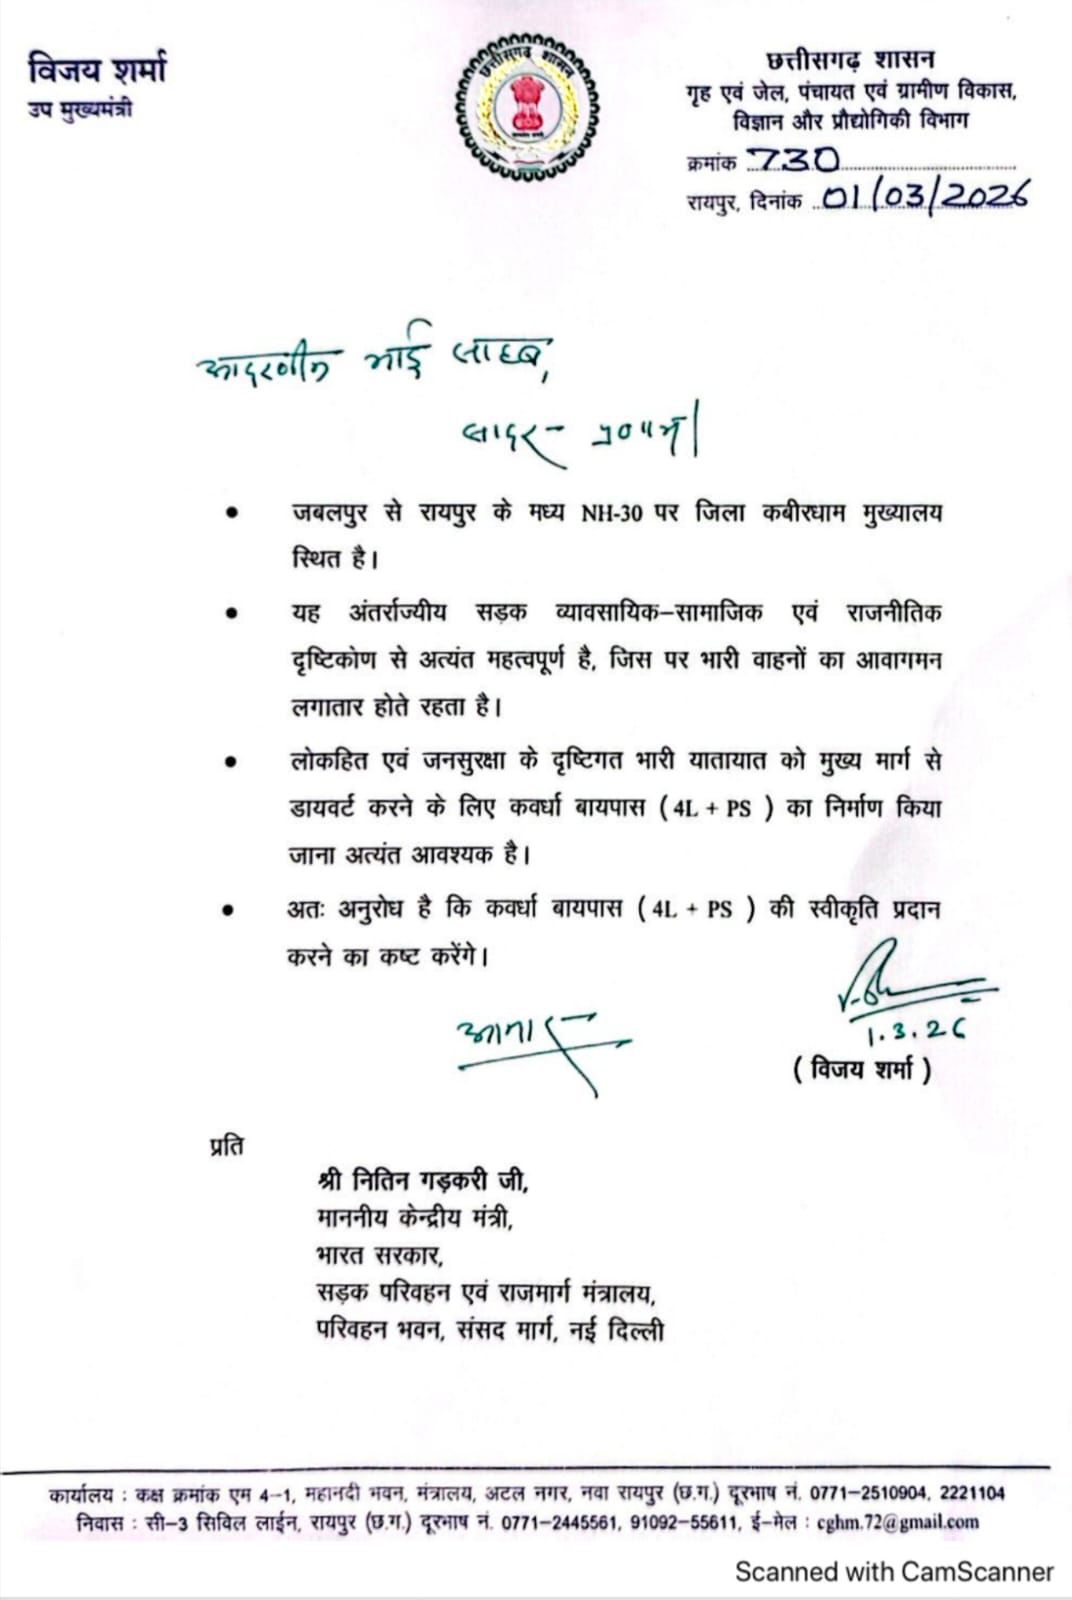 विजय शर्मा
उप मुख्यमंत्री
छत्तीसगढ़ शासन
छत्तीसगढ़ शासन
गृह एवं जेल, पंचायत एवं ग्रामीण विकास,
विज्ञान और प्रौद्योगिकी विभाग
क्रमांक 730
रायपुर, दिनांक 01/03/2026
आदरणीय भाई साहब,
सादर प्रणाम।
• जबलपुर से रायपुर के मध्य NH-30 पर जिला कबीरधाम मुख्यालय
स्थित है।
• यह अंतर्राज्यीय सड़क व्यावसायिक–सामाजिक एवं राजनीतिक
दृष्टिकोण से अत्यंत महत्वपूर्ण है, जिस पर भारी वाहनों का आवागमन
लगातार होते रहता है।
• लोकहित एवं जनसुरक्षा के दृष्टिगत भारी यातायात को मुख्य मार्ग से
डायवर्ट करने के लिए कवर्धा बायपास ( 4L + PS ) का निर्माण किया
जाना अत्यंत आवश्यक है।
• अतः अनुरोध है कि कवर्धा बायपास ( 4L + PS ) की स्वीकृति प्रदान
करने का कष्ट करेंगे।
आभार
1.3.26
( विजय शर्मा )
प्रति
श्री नितिन गड़करी जी,
माननीय केन्द्रीय मंत्री,
भारत सरकार,
सड़क परिवहन एवं राजमार्ग मंत्रालय,
परिवहन भवन, संसद मार्ग, नई दिल्ली
कार्यालय : कक्ष क्रमांक एम 4–1, महानदी भवन, मंत्रालय, अटल नगर, नवा रायपुर (छ.ग.) दूरभाष नं. 0771–2510904, 2221104
निवास : सी–3 सिविल लाईन, रायपुर (छ.ग.) दूरभाष नं. 0771–2445561, 91092–55611, ई–मेल : cghm.72@gmail.com
Scanned with CamScanner